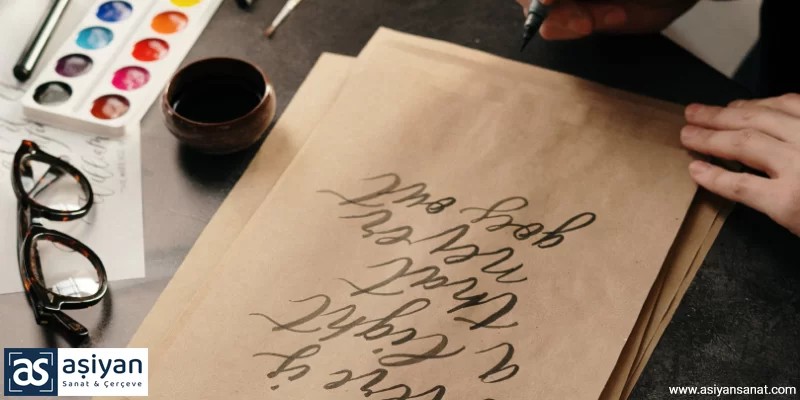 is
a light
that
never
goes out
aşiyan
Sanat & Çerçeve
www.asiyansanat.com